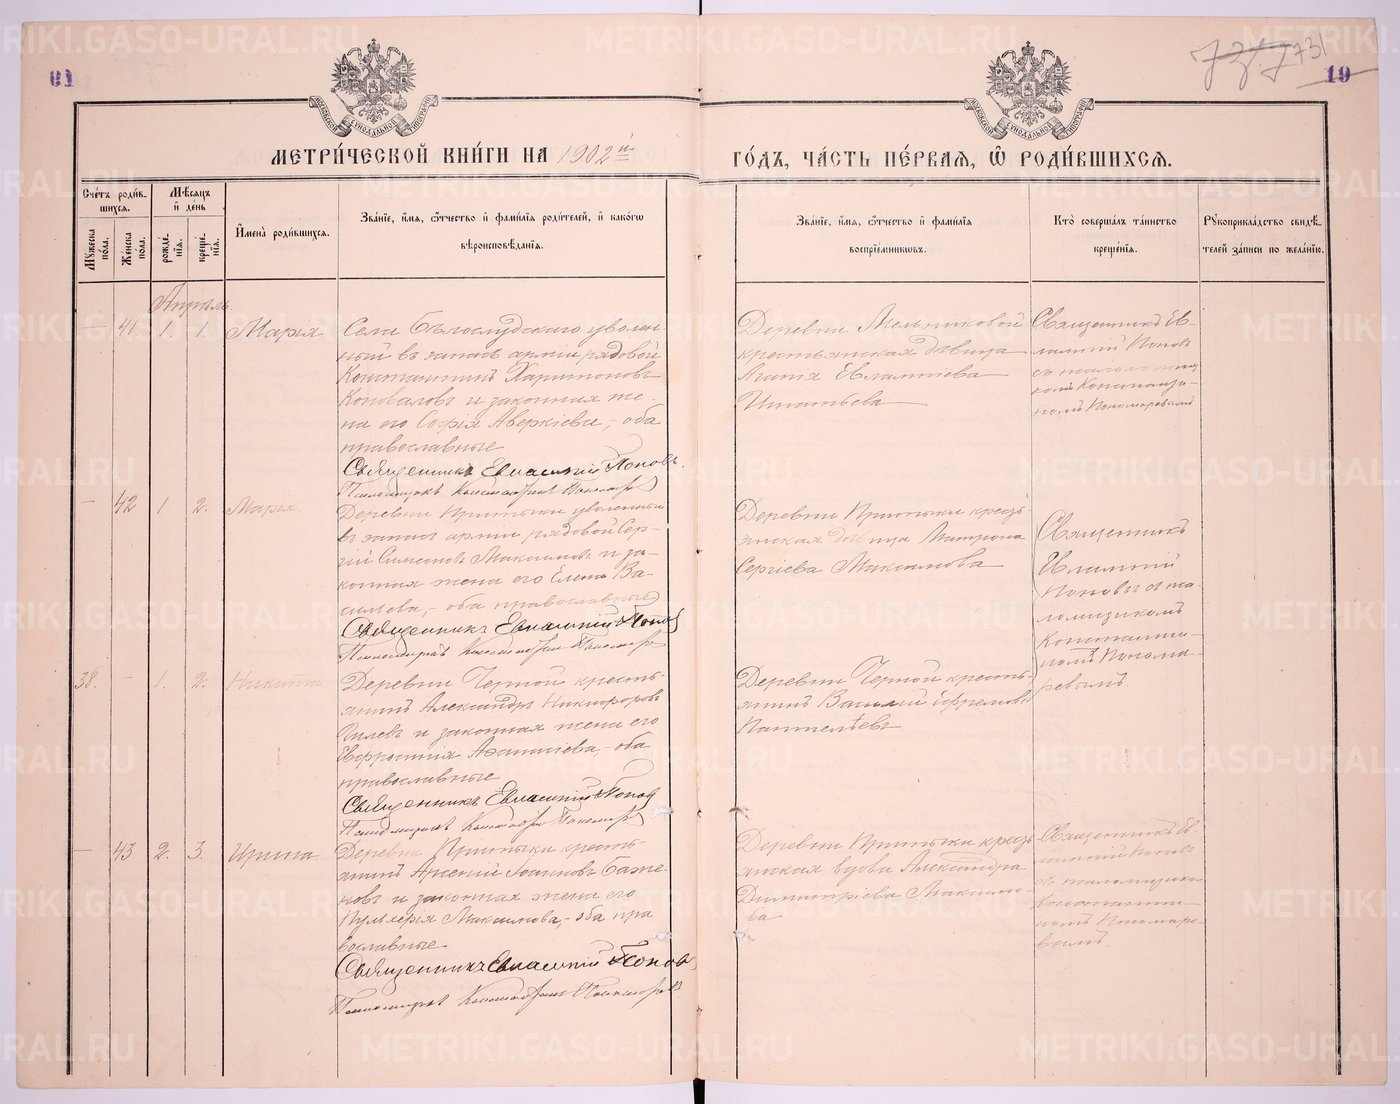 19
731
19
МОСКОВСКОЙ СѴНОДАЛЬНОЙ ТИПОГРАФІИ
МОСКОВСКОЙ СѴНОДАЛЬНОЙ ТИПОГРАФІИ
МЕТРИ́ЧЕСКОЙ КНИ́ГИ НА 1902й
ГО́ДЪ, ЧА́СТЬ ПЕ́РВАЯ, Ѽ РОДИ́ВШИХСЯ.
Сче́тъ роди́в-
шихся.
Мѣ́сяцъ
и҆ де́нь
Мꙋ́жеска по́ла.
Же́нска по́ла.
рожде́нїѧ.
креще́нїѧ.
И҆мена̀ роди́вшихся.
Зва́нїе, и҆́мѧ, ѻ҆́тчество и҆ фами́лїѧ роди́телей, и҆ како́гѡ
вѣроисповѣ́данїѧ.
Зва́нїе, и҆́мѧ, ѻ҆́тчество и҆ фами́лїѧ
воспрїе́мникѡвъ.
Кто̀ соверша́лъ та́инство
креще́нїѧ.
Рꙋкоприкла́дство свидѣ́-
телей за́писи по жела́нїю.
Апрѣль
— 41 1. 1. Марія
Села Бѣлослудскаго уволен-
ный въ запасъ арміи рядовой
Константинъ Харитоновъ
Коноваловъ и законная же-
на его Софія Аверкіева, - оба
православные
Священникъ Евлампій Поповъ.
Псаломщикъ Константинъ Пономаревъ
Деревни Мельниковой
крестьянская дѣвица
Агатія Евлампіева
Игнатьева
Священникъ Ев-
лампій Поповъ
съ псаломщи
комъ Константи-
номъ Пономаревымъ
— 42 1 2. Марія
Деревни Притыки уволенный
въ запасъ арміи рядовой Сер-
гій Симеоновъ Максимовъ и за-
конная жена его Елена Ва-
сильева, - оба православные
Священникъ Евлампій Поповъ
Псаломщикъ Константинъ Пономаревъ
Деревни Притыки кресть-
янская дѣвица Матрона
Сергіева Максимова
Священникъ
Евлампій
Поповъ съ пса-
ломщикомъ
Константи-
номъ Понома-
ревымъ
38. — 1. 2. Никита
Деревни Черной кресть-
янинъ Александръ Никифоровъ
Гилевъ и законная жена его
Евфросинія Аѳанасіева, - оба
православные
Священникъ Евлампій Поповъ
Псаломщикъ Константинъ Пономаревъ
Деревни Черной кресть-
янинъ Василій Ефремовъ
Пантелѣевъ
— 43 2. 3. Ирина
Деревни Притыки кресть-
янинъ Арсеній Іоанновъ Баже-
новъ и законная жена его
Пульхерія Максимова, - оба пра
вославные
Священникъ Евлампій Поповъ
Псаломщикъ Константинъ Пономаревъ
Деревни Притыки кресть
янская вдова Александра
Димитріева Максимо-
ва
Священникъ Ев
лампій Поповъ
съ псаломщикомъ
Константи-
номъ Пономаре-
вымъ.
METRIKI.GASO-URAL.RU